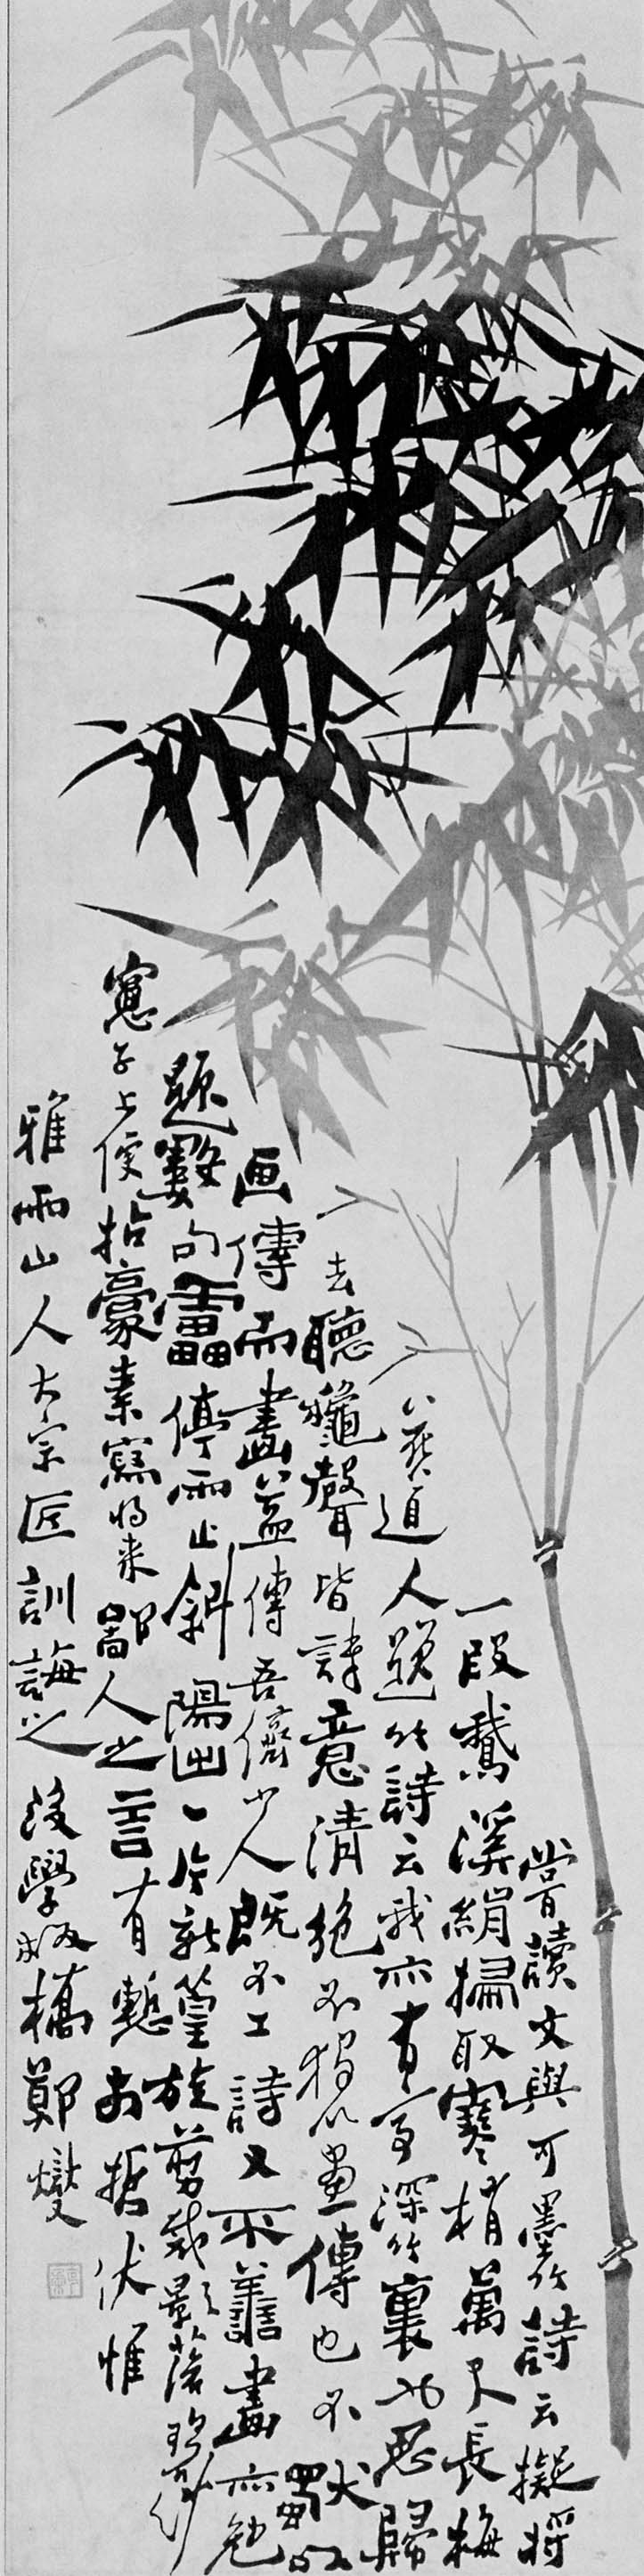 嘗讀文與可墨竹詩云擬將
一段鵞溪絹掃取寒梢萬尺長梅
道人題竹詩云我亦有亭深竹裏也思歸
去聽秋聲皆詩意清絕不獨以畫傳也不獨以
画傳而畫益傳吾儕少人既不工詩又不善畫亦勉
題數句雷停雨止斜陽出一片新篁旋剪裁影落碧紗
窓子上便拈豪素寫將来鄙人之言有慙前哲伏惟
雅雨山人大宗匠訓誨之後學板橋鄭燮